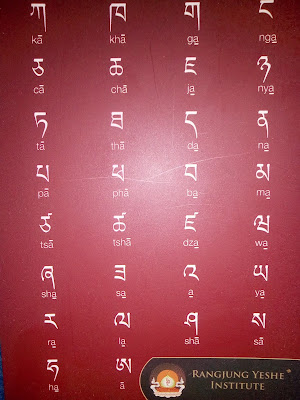 ཀ ཁ ག ང
kā khā ga̱ nga̱
ཅ ཆ ཇ ཉ
cā chā ja̱ nya̱
ཏ ཐ ད ན
tā thā da̱ na̱
པ ཕ བ མ
pā phā ba̱ ma̱
ཙ ཚ ཛ ཝ
tsā tshā dza̱ wa̱
ཞ ཟ འ ཡ
sha̱ sa̱ a̱ ya̱
ར ལ ཤ ས
ra̱ la̱ shā sā
ཧ ཨ
ha̱ ā
RANGJUNG YESHE
INSTITUTE